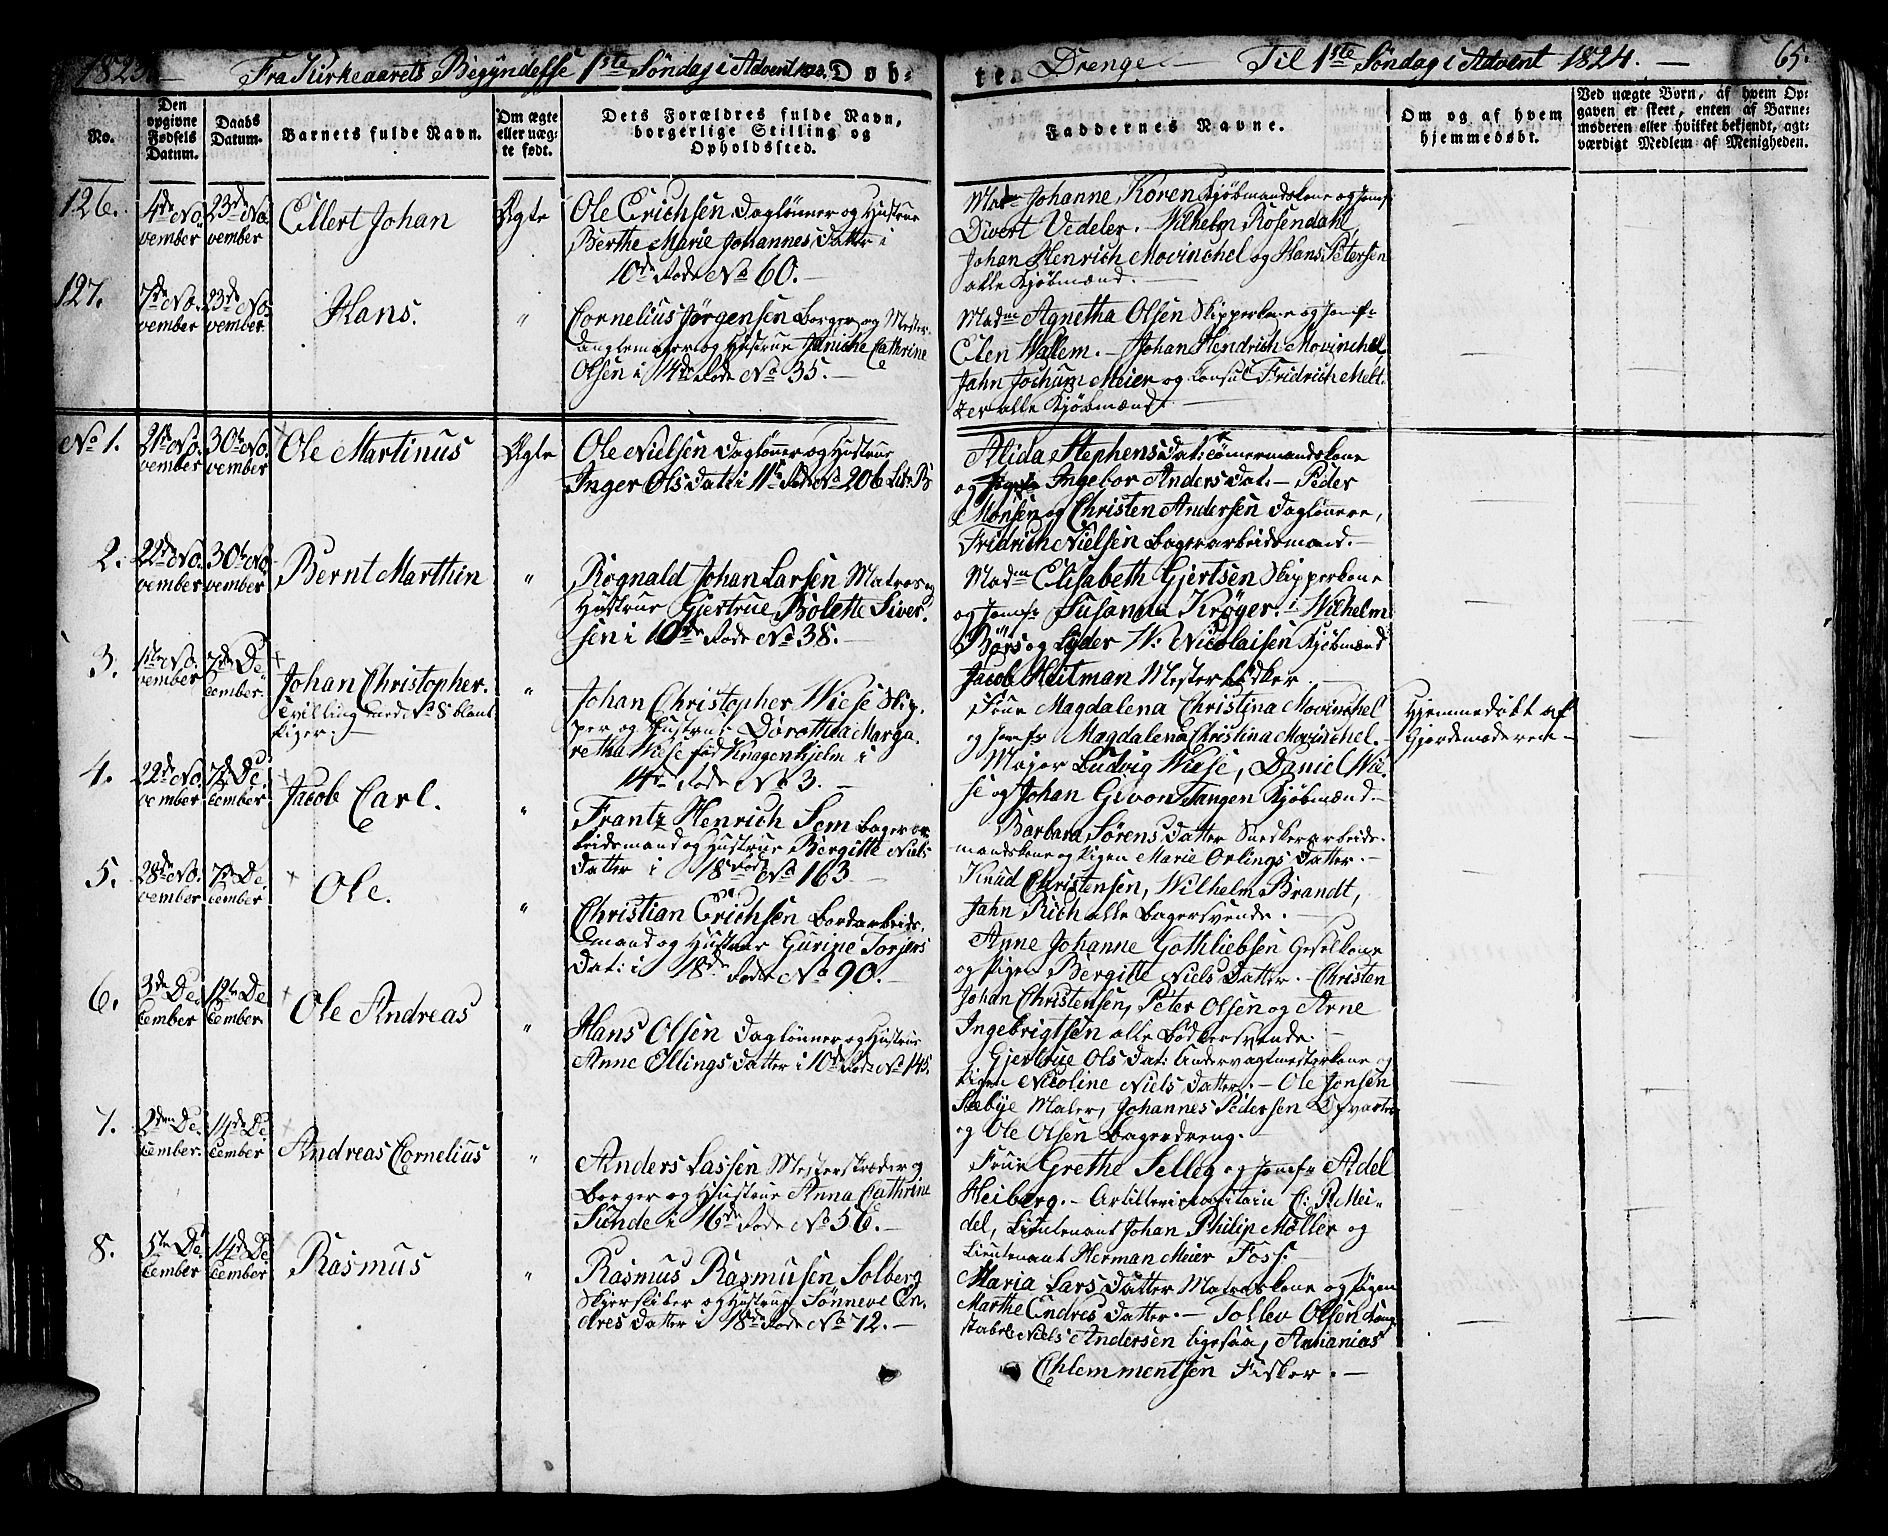 1823.
Fra Kirkeaarets Begyndelse 1ste Søndag i Advent 1823. Døb-
te Drenge Til 1ste Søndag i Advent 1824.
65.
No.
Den opgivne Fødsels Datum.
Daabs Datum.
Barnets fulde Navn.
Om ægte eller uæg-te født.
Dets Forældres fulde Navn, borgerlige Stilling og Opholdssted.
Faddernes Navne.
Om og af hvem hjemmedøbt.
Ved uægte Børn, af hvem Op-
gaven er skeet, enten af Barne-
moderen eller hvilket bekjendt, agt-
værdigt Medlem af Menigheden.
126.
4de No
vember
23de No
vember
Ellert Johan
Ægte
Ole Erichsen Daglønner og Hustrue
Berthe Marie Johannes Datter i
10de Rode No 60.
Madme Johanne Koren Kjøbmandskone og Jomfr
Divert Vedeler. Wilhelm Rosendahl,
Johan Henrich Movinchel og Hans Petersen
alle Kjøbmænd.
127.
7de No.
vember
23de No.
vember
Hans.
"
Cornelius Jørgensen Borger og Mester
og Hustrue Jeniche Cathrine
Olsen i 14de Rode No 35.
Madme Agnetha Olsen Skipperkone og Jomfr
Elen Wallem. Johan Hendrich Movinchel
Jahn Jochum Meier og Consul Fridrich Melt-
zer alle Kjøbmænd.
No 1.
21de No.
vember
30te No.
vember
Ole Martinus
Ægte
Ole Nielsen Dagløner og Hustrue
Inger Ols Datt: i 11te Rode No 206 Litr B
Alida Stephens Dat: Tømermandskone
og Ingebor Anders Dat. Peder
Monsen og Christen Andersen Daglønere,
Fridrich Nielsen Bagerarbeidsmand.
2.
22de No.
vember
30te No
vember
Bernt Marthin
"
Rognald Johan Larsen Matros og
Hustrue Gjertrue Bolette Siver-
sen i 10de Rode No 38.
Madme Elisabeth Gjertsen Skipperkone
og Jomfr Susanna Krøger. Wilhelm
Børs og Lyder W: Nicolaisen Kjøbmænd
Jacob Heitman Mester Bødker.
3.
1ste No.
vember
7de De
cember.
Johan Christopher.
Tvilling med No 8 blant
Piger.
"
Johan Christopher Wiese Skip-
per og Hustrue Dorothea Marga-
retha Wiese fød Knagenhjelm i
14de Rode No 3.
Frue Magdalena Christina Movinchel
og Jomfr Magdalena Christina Movinchel.
Major Ludvig Wiese, Daniel Wie-
se og Johan Gevon Tangen Kjøbmænd.
Hjemmedøbt af
Gjordemoderen
4.
22de No.
vember
7de De
cember
Jacob Carl.
"
Frantz Henrich Sem Bager ar-
beidsmand og Hustrue Bergitte Niels
Datter i 18de Rode No 163
Barbara Sørens Datter Snedkerarbeids-
mandskone og Pigen Marie Erlings Datter.
Knud Christensen, Wilhelm Brandt,
Jahn Rich alle Bagersvende.
5.
28de No.
vember
7de De
cember
Ole.
"
Christian Erichsen Bordarbeids-
mand og Hustrue Gurine Torgers
Dat: i 18de Rode No 90.
Anne Johanne Gothliebsen Geselkone
og Pigen Bergitte Niels Datter. Christen
Johan Christensen, Peter Olsen og Arne
Ingebrigtsen alle Bødkersvende.
6.
3de De
cember
12te De
cember
Ole Andreas
"
Hans Olsen Dagløner og Hustrue
Anne Ellings Datter i 10de Rode No 145.
Gjertrue Ols Dat: Undervagtmesterkone og
Pigen Nicoline Niels Datter. Ole Jonsen
Stebye Maler, Johannes Pedersen Opvarter
og Ole Olsen Bagerdreng.
7.
2den De
cember.
14de De
cember
Andreas Cornelius
"
Anders Lassen Mesterskræder og
Borger og Hustrue Anna Cathrine
Sunde i 16de Rode No 56.
Frue Grethe Selleg og Jomfr Adel
Heiberg. Artillericapitain C: R: Mei-
del, Lieutenant Johan Philip Møller og
Lieutenant Herman Meier Foss.
8.
5te De
cember
14de De
cember
Rasmus
"
Rasmus Rasmusen Solberg
Skjersliber og Hustrue Sønneve En-
dres Datter i 18de Rode No 72.
Maria Lars Datter Matroskone og Pigen
Marthe Endres Datter. Tollev Olsen
Niels Andersen ligesaa, Annanias
Chlemmentsen Fisker.